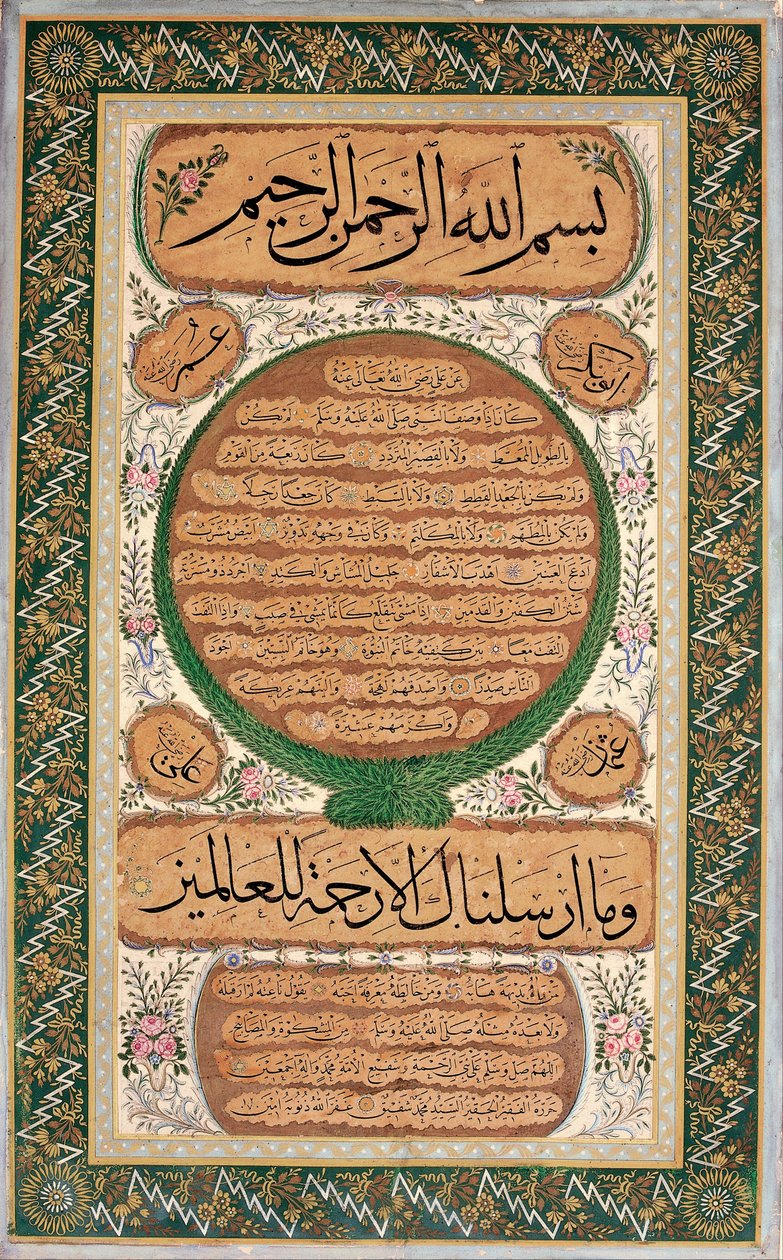 بسم الله الرحمن الرحيم
ابو بكر رضي الله عنه
عمر رضي الله عنه
عن علي رضي الله تعالى عنه
كان اذا وصف النبي صلى الله عليه وسلم لم يكن
بالطويل الممغط ولا بالقصير المتردد كان ربعة من القوم
ولم يكن بالجعد القطط ولا بالسبط كان جعدا رجلا
ولم يكن بالمطهم ولا بالمكلثم وكان في وجهه تدوير ابيض مشرب
ادعج العينين اهدب الاشفار جليل المشاش والكتد اجرد ذو مسربة
شثن الكفين والقدمين اذا مشى يتقلع كانما يمشي في صبب واذا التفت
التفت معا بين كتفيه خاتم النبوة وهو خاتم النبيين اجود
الناس صدرا واصدقهم لهجة والينهم عريكة
واكرمهم عشيرة
عثمان رضي الله عنه
علي رضي الله عنه
وما ارسلناك الا رحمة للعالمين
من رآه بديهة هابه ومن خالطه معرفة احبه يقول ناعته لم ار قبله
ولا بعده مثله صلى الله عليه وسلم من المشكوة والمصابيح
اللهم صل وسلم على نبي الرحمة وشفيع الامة محمد وآله اجمعين
حرره الفقير الحقير السيد محمد شفيق غفر الله ذنوبه امين